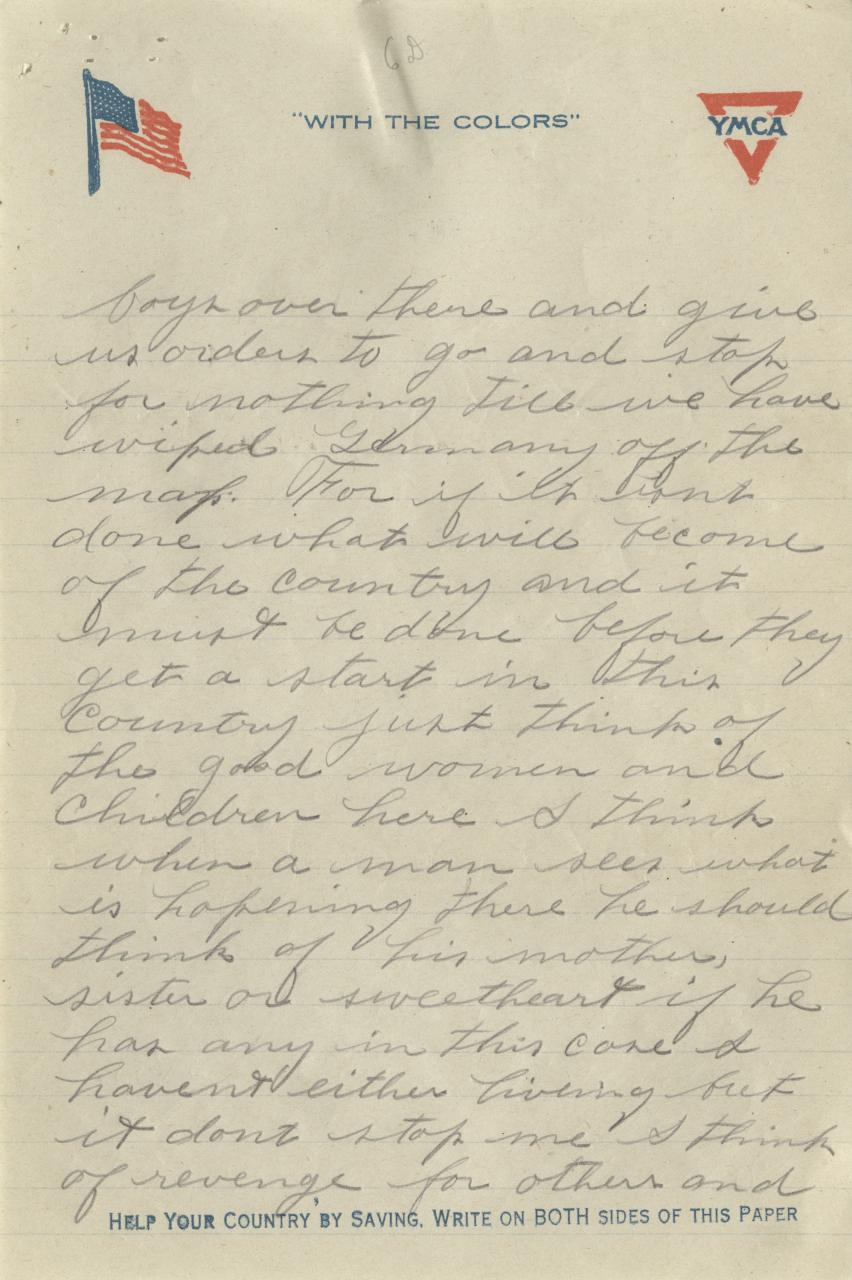 6D
"WITH THE COLORS"
YMCA
boys over there and give
us orders to go and stop
for nothing till we have
wiped Germany off the
map. For if it isnt
done what will become
of the country and it
must be done before they
get a start in this
Country just think of
the good women and
Children here I think
when a man sees what
is hapening there he should
think of his mother,
sister or sweetheart if he
has any in this case I
havent either liveing but
it dont stop me I think
of revenge for others and
HELP YOUR COUNTRY BY SAVING. WRITE ON BOTH SIDES OF THIS PAPER